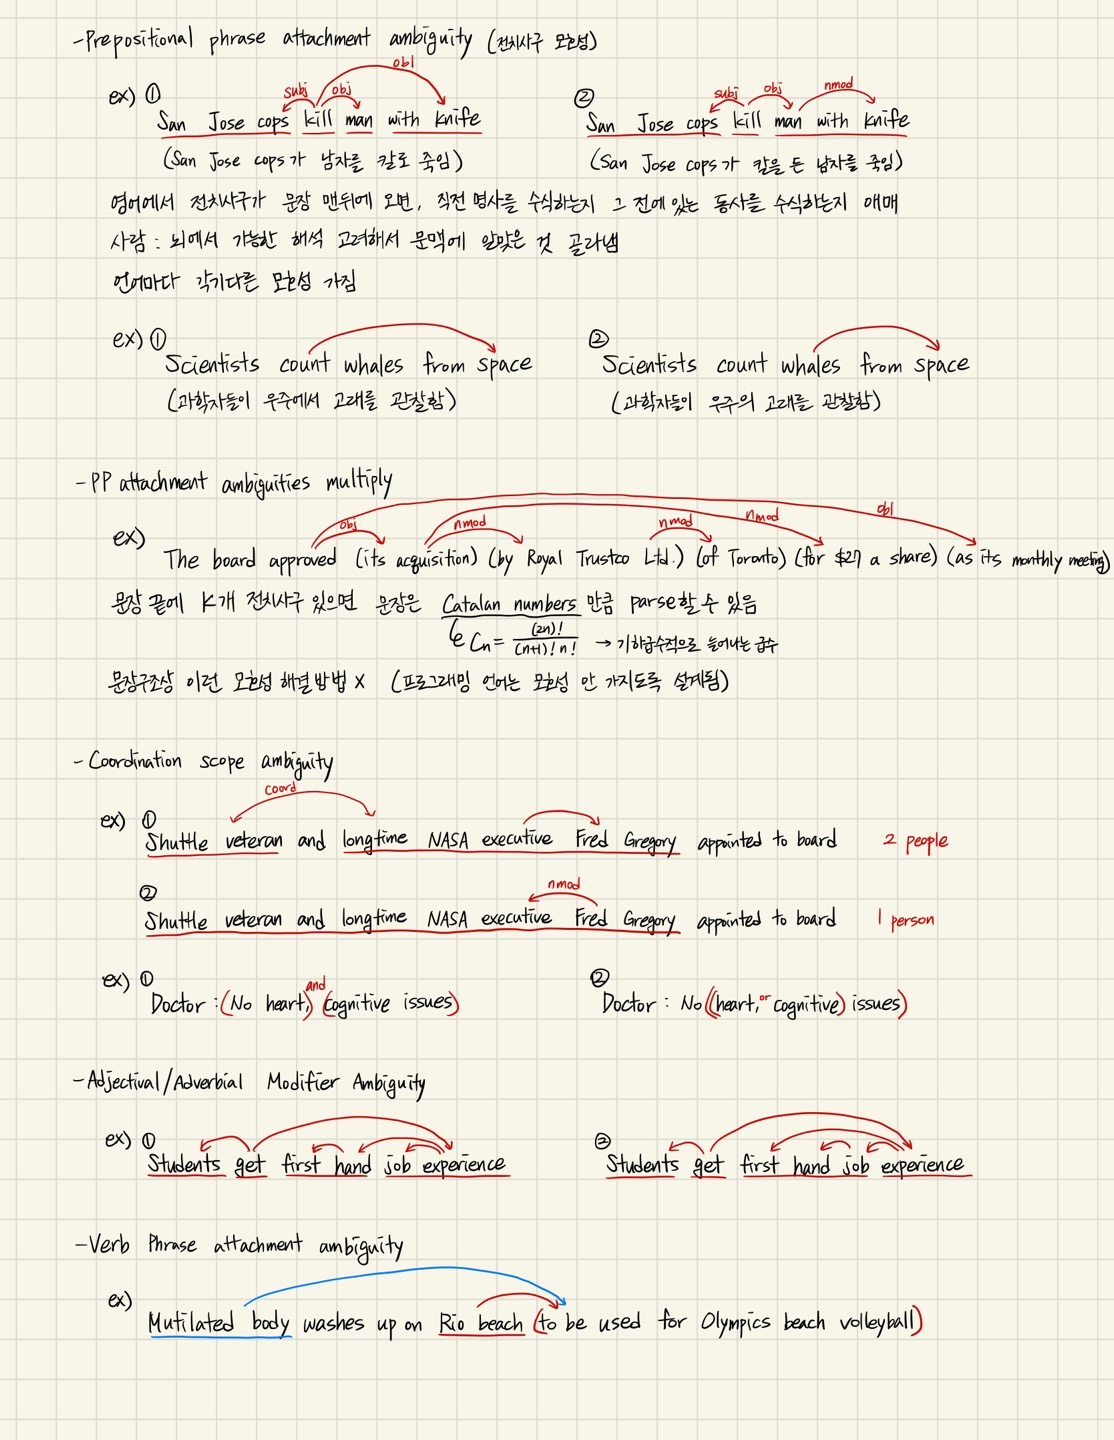 -Prepositional phrase attachment ambiguity (전치사구 모호성)
ex) ① San Jose cops kill man with knife
subj obj obl
② San Jose cops kill man with knife
subj obj nmod
(San Jose cops가 남자를 칼로 죽임)
(San Jose cops가 칼을 든 남자를 죽임)
영어에서 전치사구가 문장 맨뒤에 오면, 직전 명사를 수식하는지 그 전에 있는 동사를 수식하는지 애매
사람 : 뇌에서 가능한 해석 고려해서 문맥에 알맞은 것 골라냄
언어마다 각기다른 모호성 가짐
ex) ① Scientists count whales from space
② Scientists count whales from space
(과학자들이 우주에서 고래를 관찰함)
(과학자들이 우주의 고래를 관찰함)
- PP attachment ambiguities multiply
obj nmod nmod nmod obl
ex) The board approved (its acquisition) (by Royal Trustco Ltd.) (of Toronto) (for $27 a share) (as its monthly meeting)
문장 끝에 k개 전치사구 있으면 문장은 Catalan numbers 만큼 parse할 수 있음
Cn = (2n)! / (n+1)! n! → 기하급수적으로 늘어나는 급수
문장구조상 이런 모호성 해결방법 X (프로그래밍 언어는 모호성 안 가지도록 설계됨)
- Coordination scope ambiguity
coord
ex) ① Shuttle veteran and longtime NASA executive Fred Gregory appointed to board 2 people
nmod
② Shuttle veteran and longtime NASA executive Fred Gregory appointed to board 1 person
ex) ① Doctor : (No heart,) and (cognitive issues)
② Doctor : No ((heart, or cognitive) issues)
-Adjectival/Adverbial Modifier Ambiguity
ex) ① Students get first hand job experience
② Students get first hand job experience
-Verb Phrase attachment ambiguity
ex) Mutilated body washes up on Rio beach (to be used for Olympics beach volleyball)